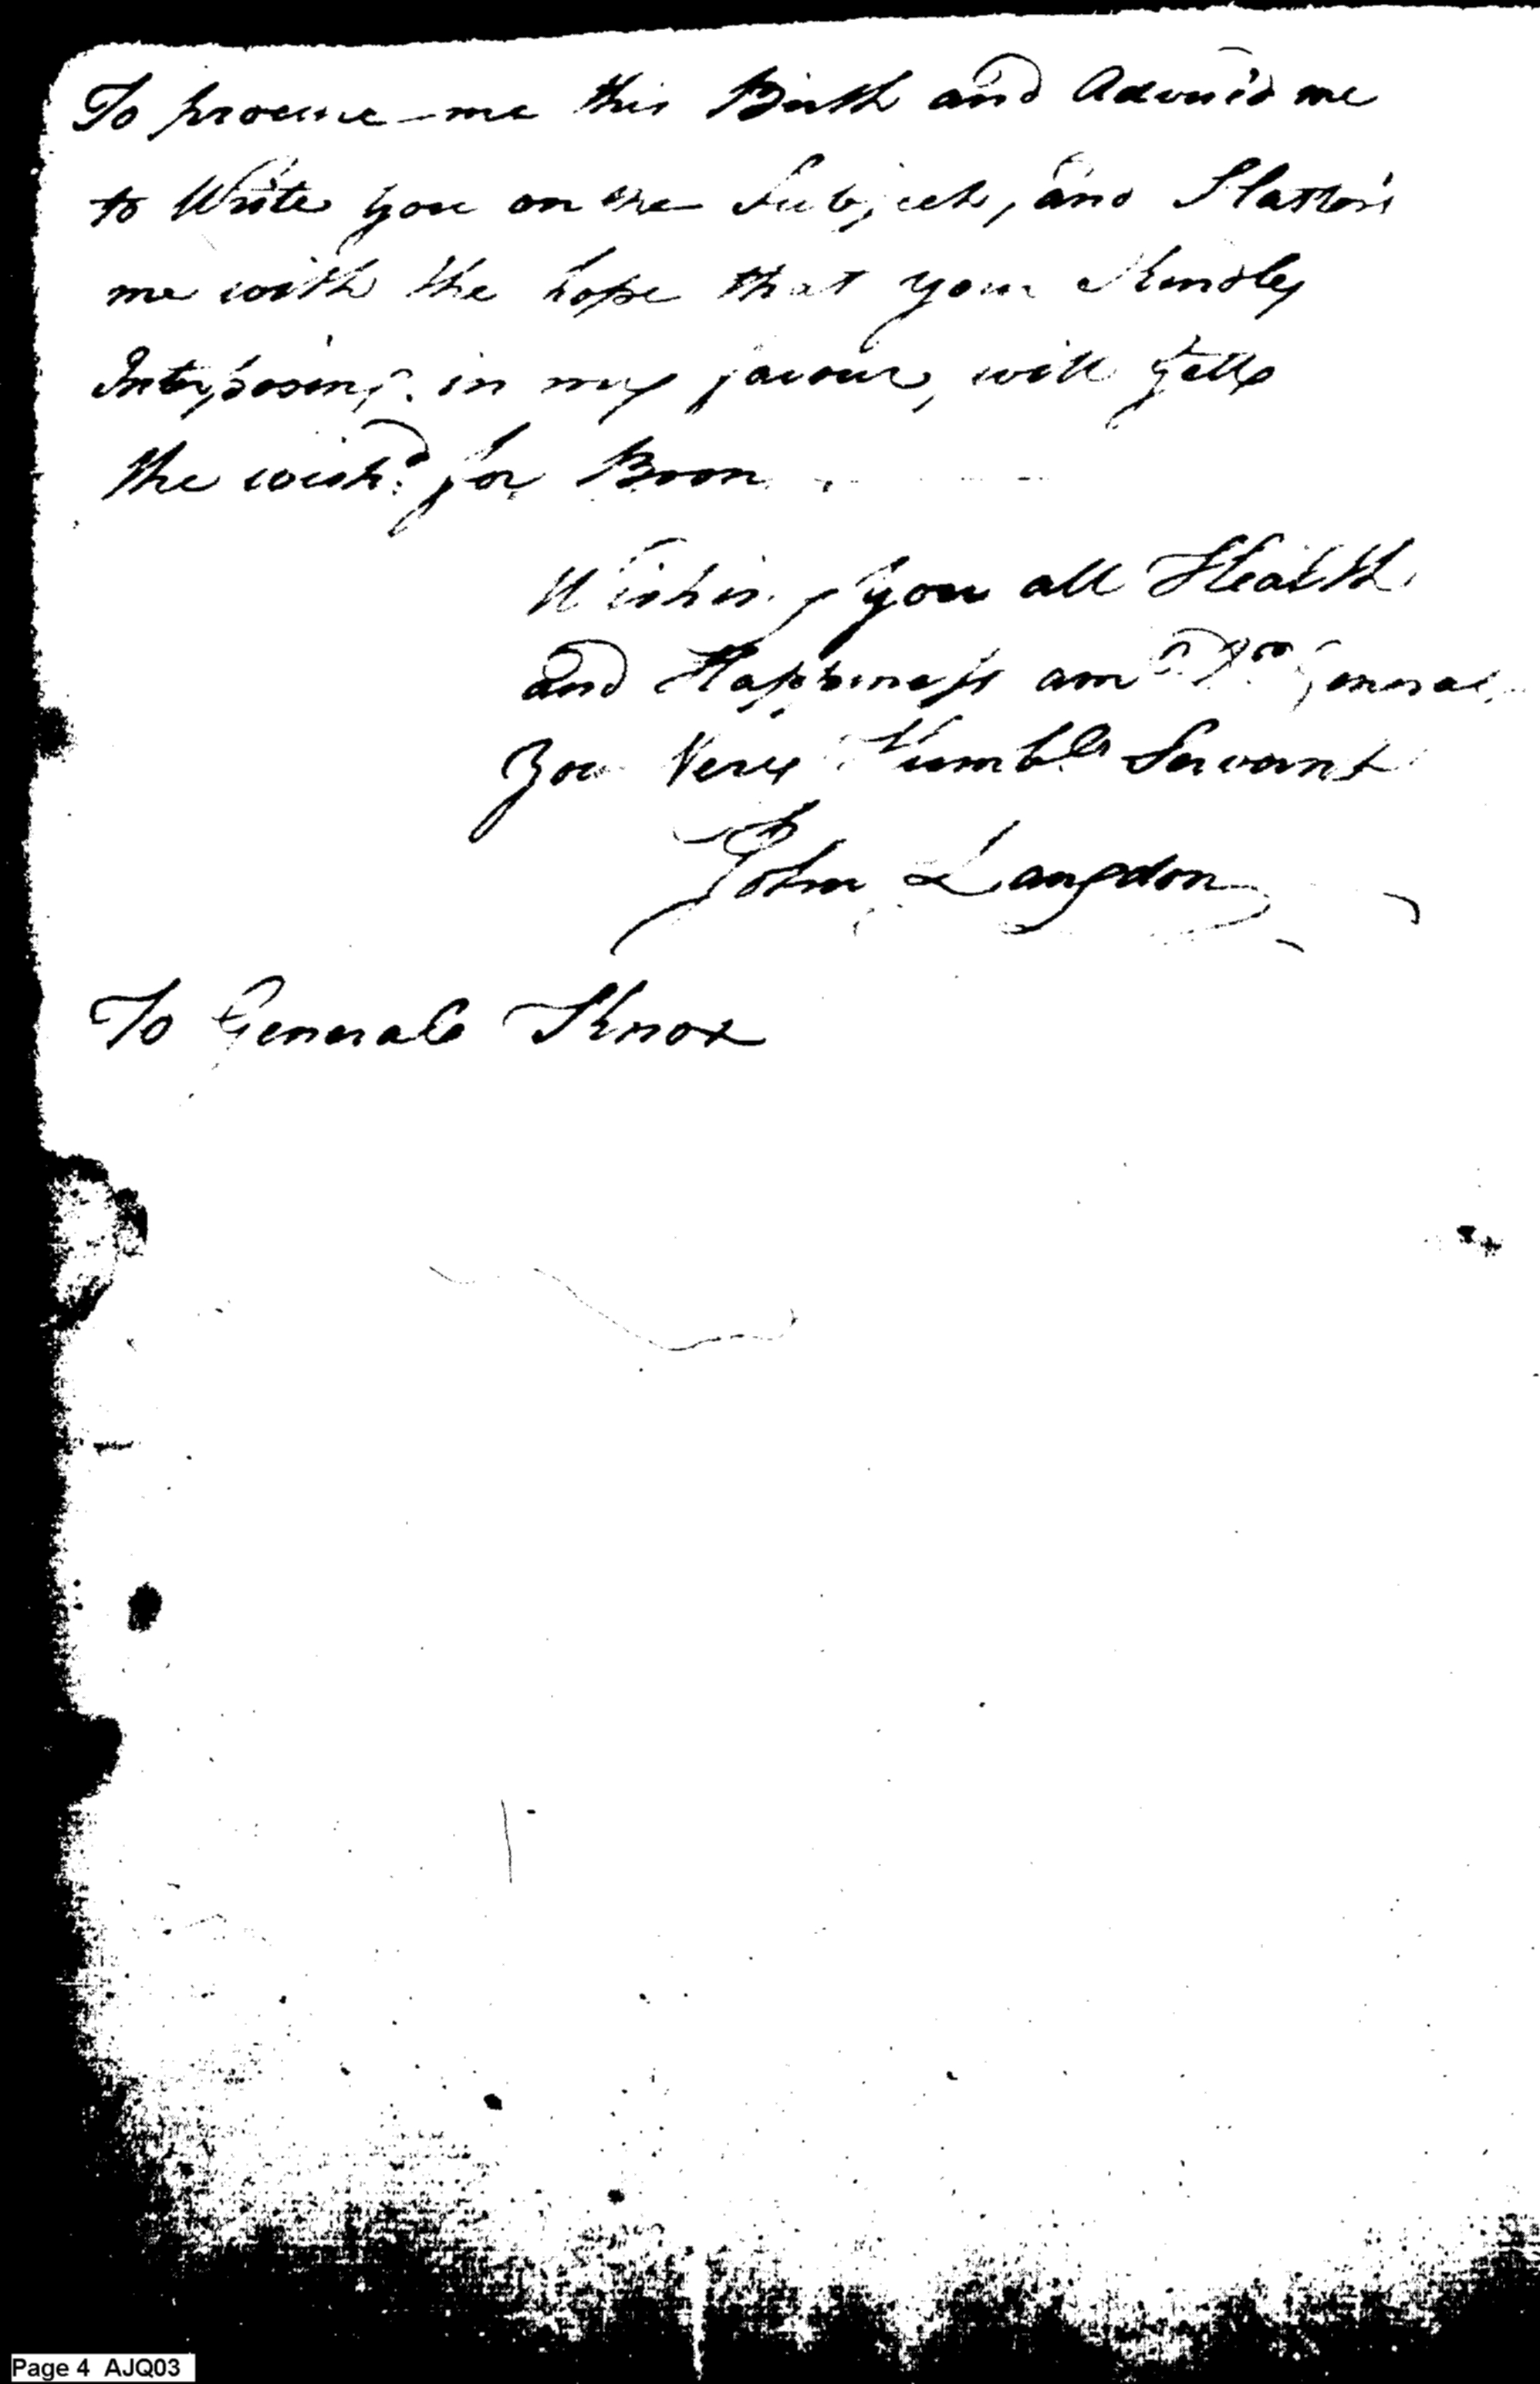 To procure me this Birth and Advis'd me
to Write you on the Subject, and Flatters
me with the hope that your Kindly
Interposing in my favour, will gett
the wish'd for Boon.
Wishing you all Health
and Happiness am Dr General
Your Very Humble Servant
John Langdon
To General Knox
Page 4 AJQ03